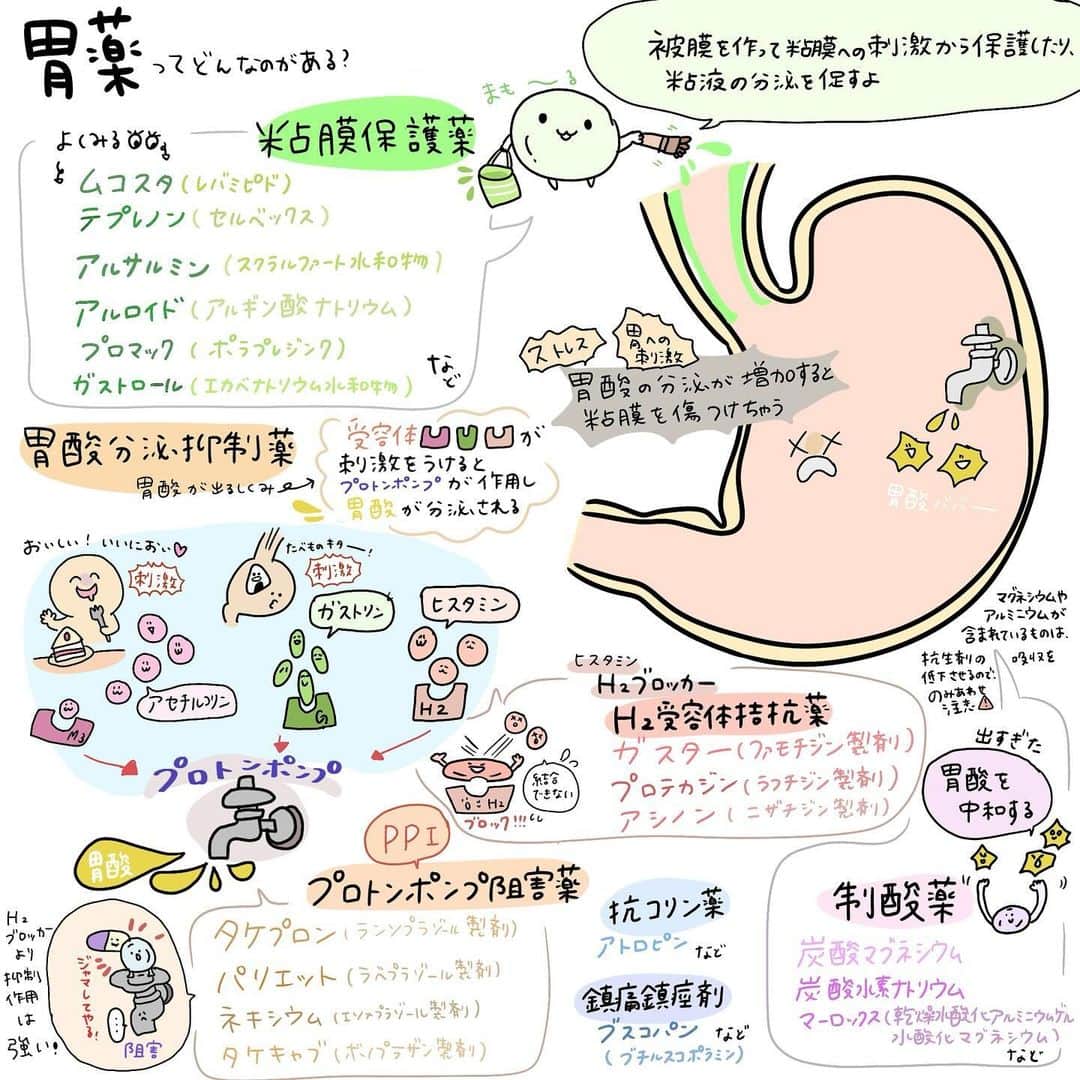 胃薬ってどんなのがある?
被膜を作って粘膜への刺激から保護したり、
粘液の分泌を促すよ
まも〜る
粘膜保護薬
よくみる
ムコスタ(レバミピド)
テプレノン(セルベックス)
アルサルミン(スクラルファート水和物)
アルロイド(アルギン酸ナトリウム)
プロマック(ポラプレジンク)
ガストロール(エカベナトリウム水和物)
など
ストレス
胃への
刺激
胃酸の分泌が増加すると
粘膜を傷つけちゃう
胃酸ババーー
胃酸分泌抑制薬
胃酸が出るしくみ
受容体が
刺激をうけると
プロトンポンプが作用し
胃酸が分泌される
おいしい!いいにおい
刺激
たべものキター!
刺激
ガストリン
ヒスタミン
アセチルコリン
M3
G
H2
プロトンポンプ
胃酸
ヒスタミン
H2ブロッカー
H2受容体拮抗薬
ガスター(ファモチジン製剤)
プロテカジン(ラフチジン製剤)
アシノン(ニザチジン製剤)
H2
結合
できない
ブロック!!!
マグネシウムや
アルミニウムが
含まれているものは、
抗生剤の吸収を
低下させるので、
のみあわせ
注意
出すぎた
胃酸を
中和する
制酸薬
炭酸マグネシウム
炭酸水素ナトリウム
マーロックス(乾燥水酸化アルミニウムゲル
水酸化マグネシウム)
など
PPI
プロトンポンプ阻害薬
タケプロン(ランソプラゾール製剤)
パリエット(ラベプラゾール製剤)
ネキシウム(エソメプラゾール製剤)
タケキャブ(ボノプラザン製剤)
H2
ブロッカー
より
抑制
作用
は
強い!
ジャマしてやる!
阻害
抗コリン薬
アトロピンなど
鎮痛鎮痙剤
ブスコパンなど
(ブチルスコポラミン)